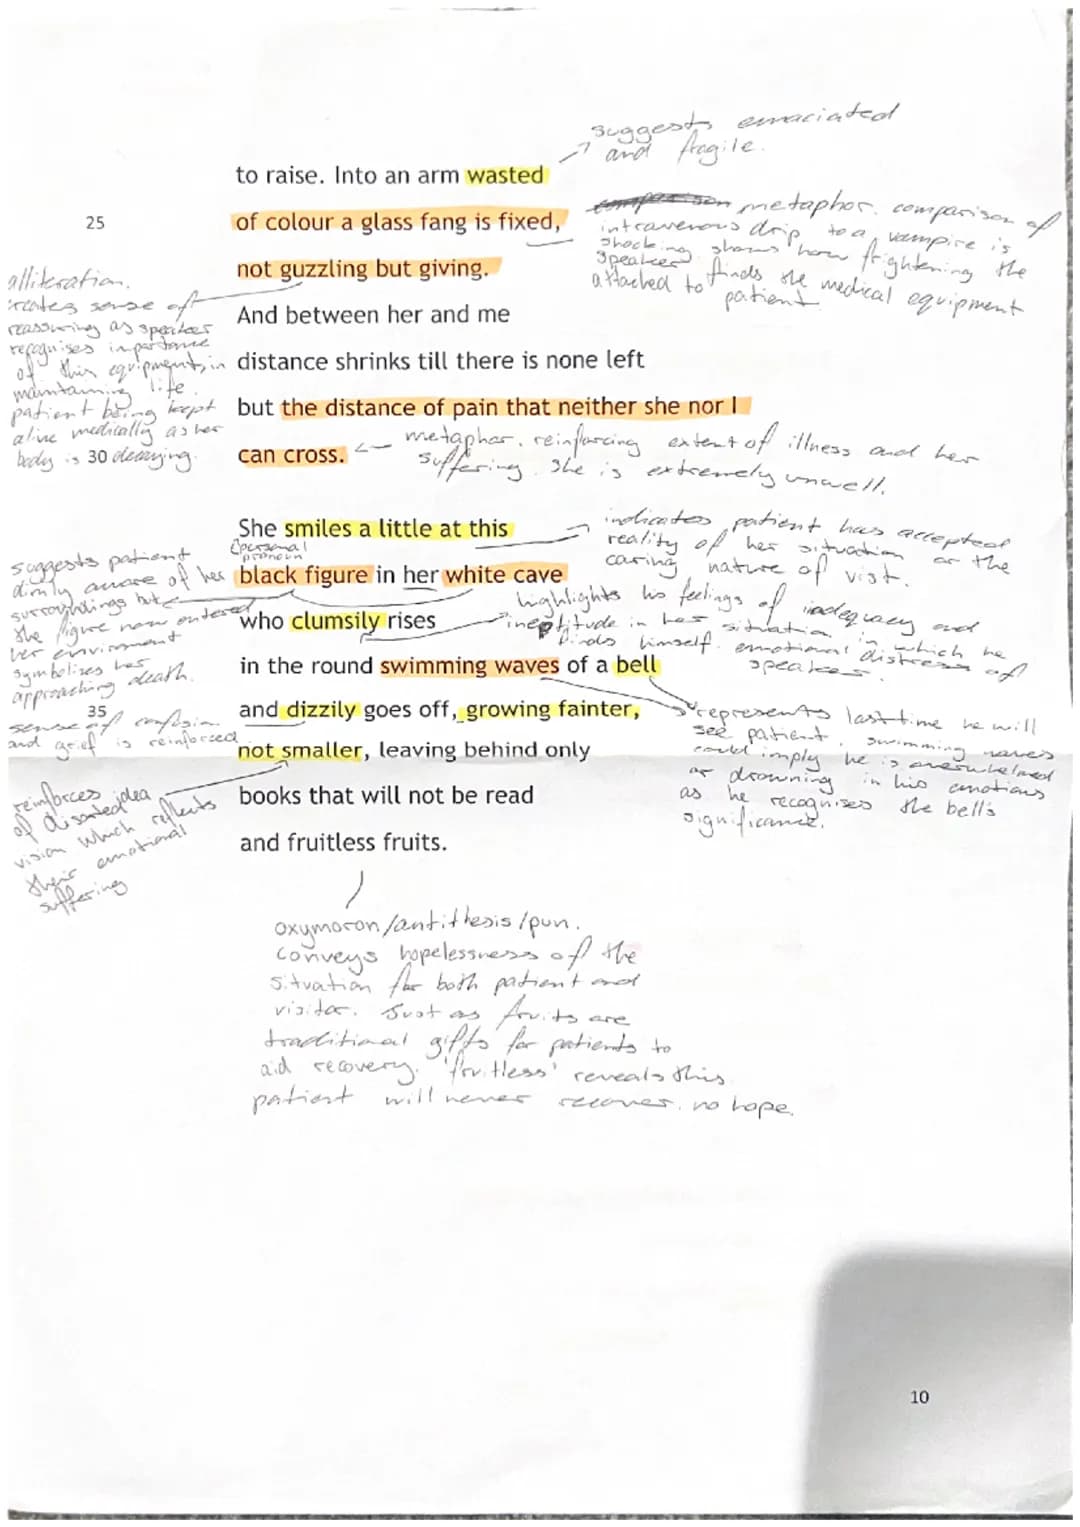 suggests emaciated
and fragile.
to raise. Into an arm wasted
25
of colour a glass fang is fixed,
metaphor. comparison of
intravenous drip to a vampire is
shocking shows how frightening the
speaker finds the medical equipment
attached to patient
not guzzling but giving.
alliteration.
creates sense of
reassuring as speaker
recognises importance
of this equipment, in
maintaining life.
patient being kept
alive medically as her
body is decaying.
And between her and me
distance shrinks till there is none left
but the distance of pain that neither she nor I
30
can cross.
metaphor. reinforcing extent of illness and her
suffering. She is extremely unwell.
She smiles a little at this
indicates patient has accepted
reality of her situation or the
caring nature of visit.
personal
pronoun
black figure in her white cave
suggests patient
dimly aware of her
surroundings but
the figure now entered
her environment
symbolises her
approaching death.
who clumsily rises
highlights his feelings of inadequacy and
ineptitude in her situation in which he
finds himself. emotional distress of
speaker.
in the round swimming waves of a bell
35
and dizzily goes off, growing fainter,
sense of confusion
and grief is reinforced
represents last time he will
see patient. swimming waves
could imply he is overwhelmed
or drowning in his emotions
as he recognises the bell's
significance.
not smaller, leaving behind only
reinforces idea
of
vision which reflects
their emotional
suffering
books that will not be read
and fruitless fruits.
oxymoron/antithesis/pun.
conveys hopelessness of the
situation for both patient and
visitor. Just as fruits are
traditional gifts for patients to
aid recovery. 'fruitless' reveals this
patient will never recover. no hope.
10